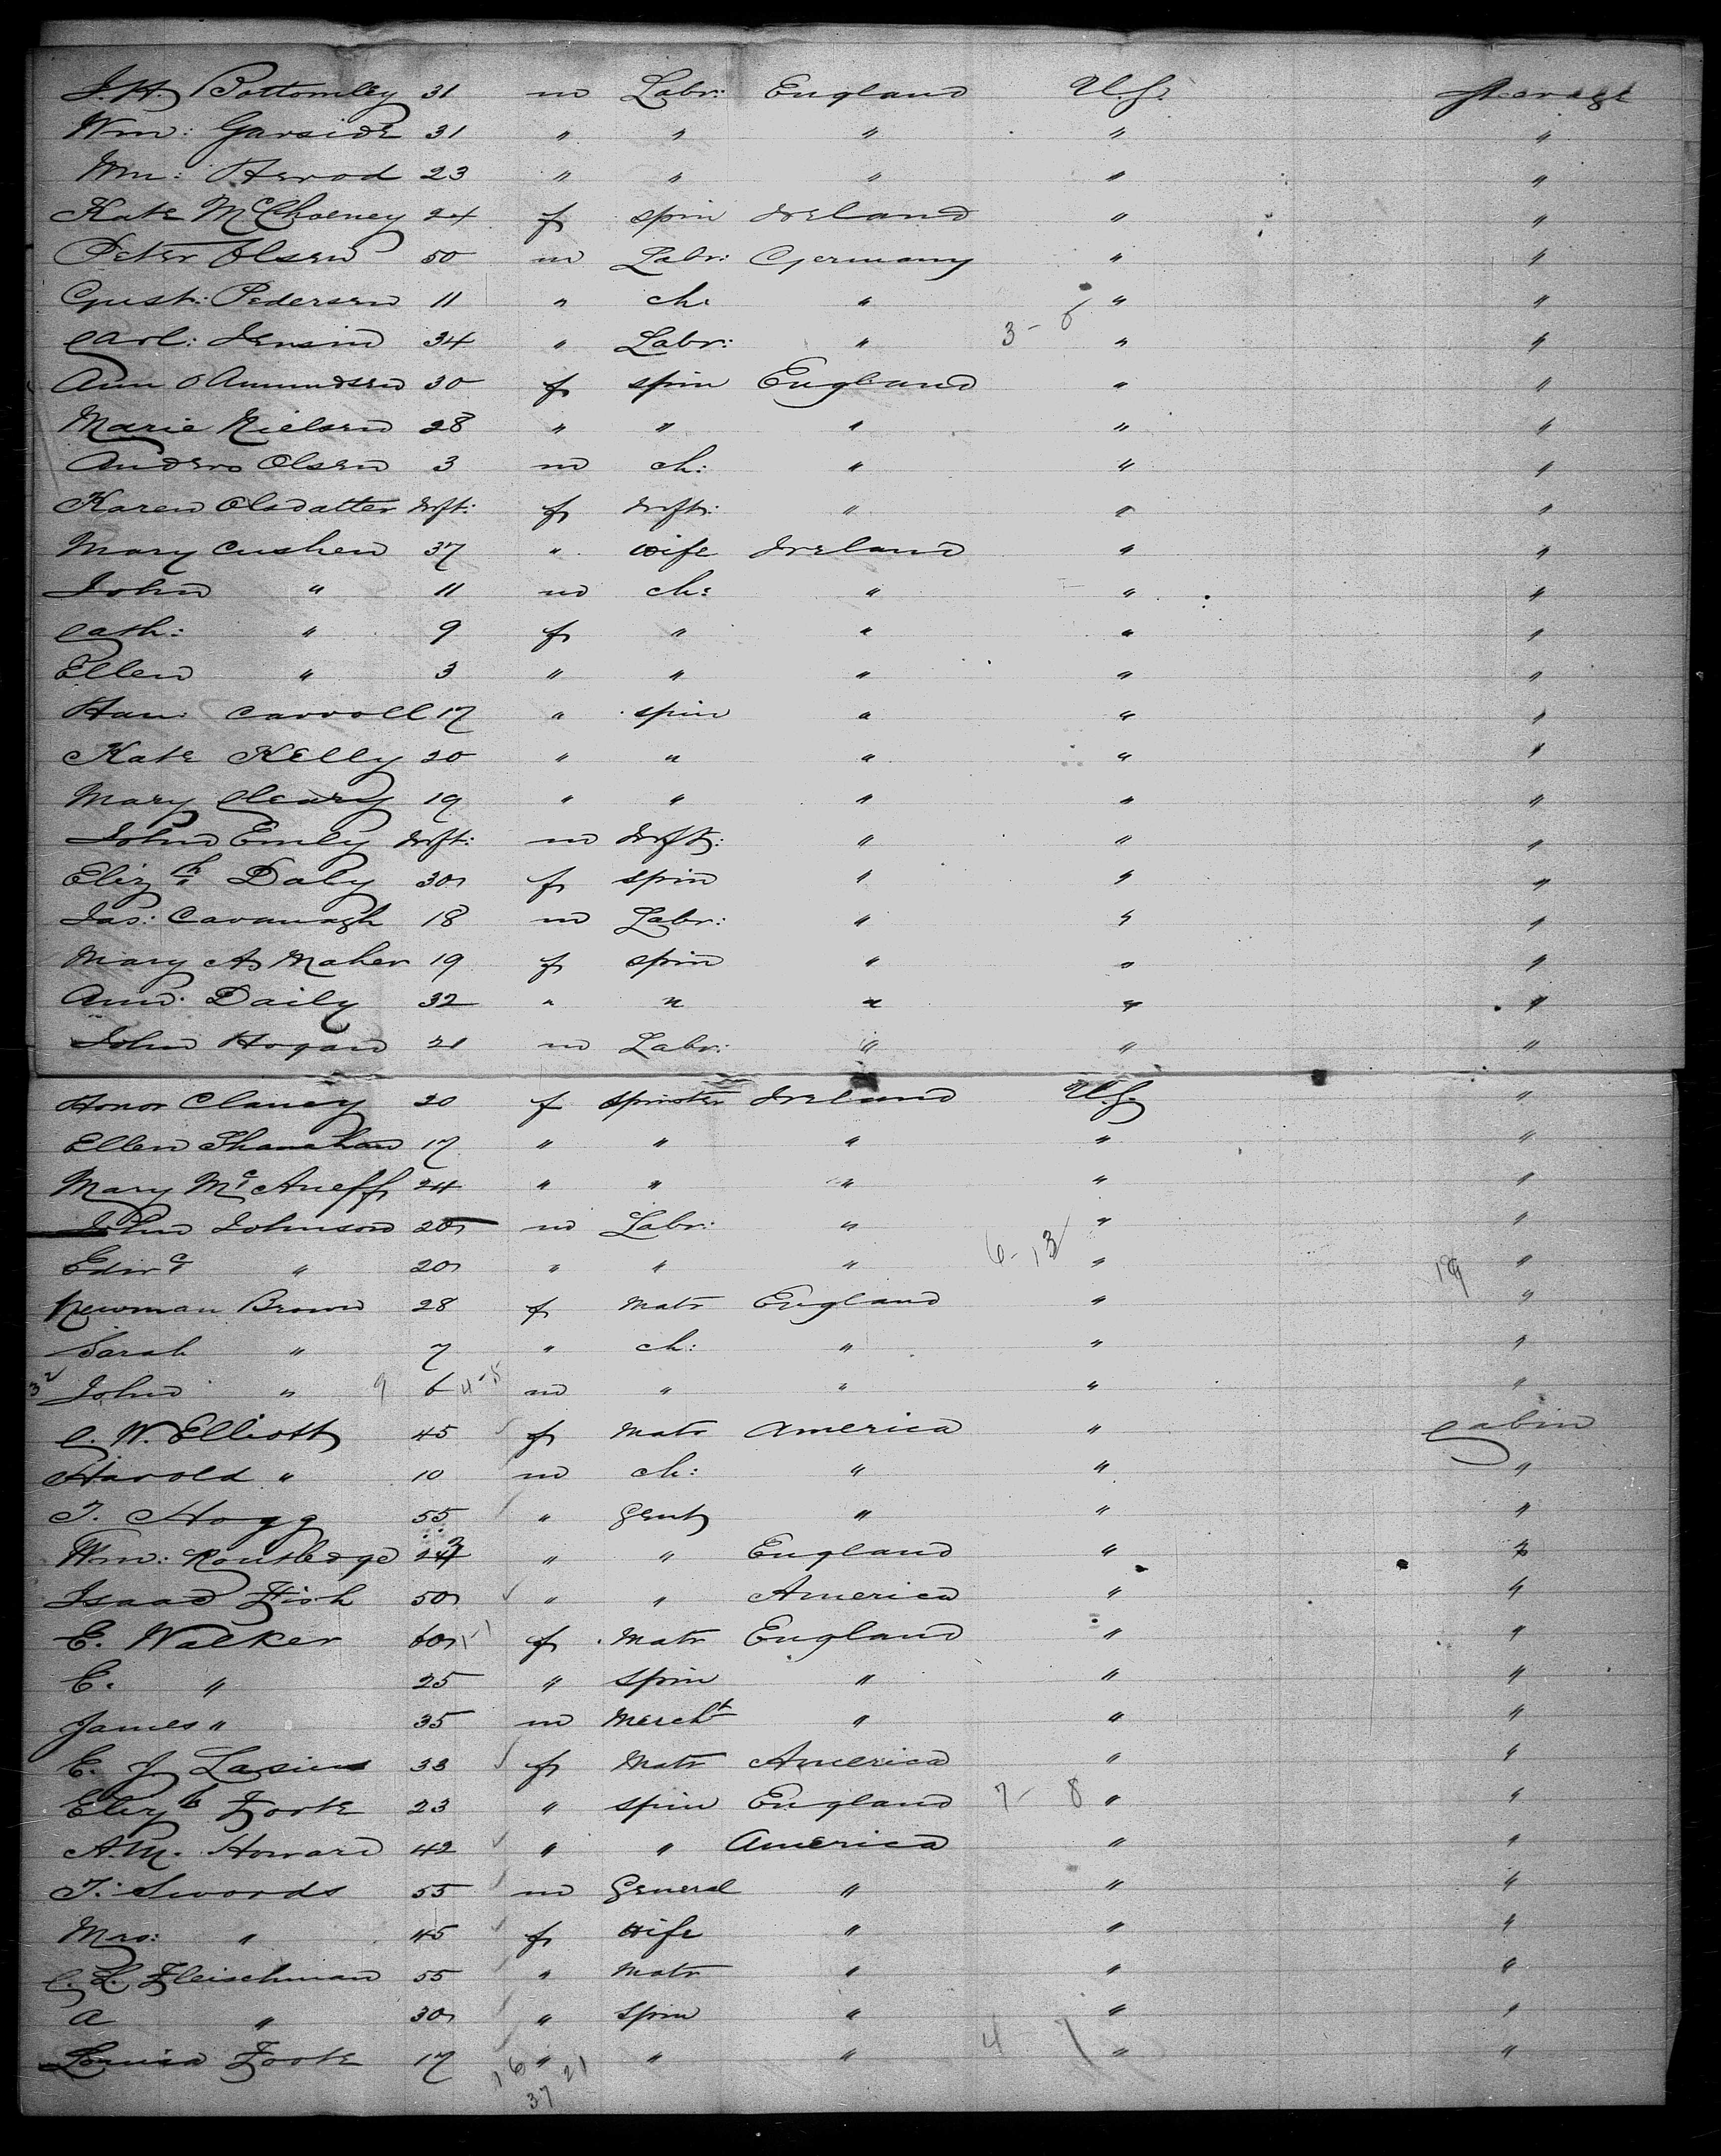 J. H. Bottomley 31 m Labr: England U.S. Steerage
Wm: Garside 31 " " " " "
Wm: Herod 23 " " " " "
Kate 24 f spin Ireland " "
Peter Olsen 50 m Labr: Germany " "
Gust: Pedersen 11 " ch: " " "
Carl: Jensin 34 " Labr: " 3- " "
Ann O Amundsen 30 f spin England " "
Marie Nielsen 28 " " " " "
Anders Olsen 3 m ch: " " "
Karen Olsdatter Inft: f Inft: " " "
Mary Cushen 37 " wife Ireland " "
John " 11 m ch: " " "
Cath: " 9 f " " " "
Ellen " 3 " " " " "
Han: Carroll 17 " spin " " "
Kate Kelly 20 " " " " "
Mary Cleary 19 " " " " "
John Emly Inft: m Inft: " " "
Elizth Daly 30 f spin " " "
Jas: Cavanagh 18 m Labr: " " "
Mary A Maher 19 f spin " " "
Ann Daily 32 " " " " "
John Hogan 21 m Labr: " " "
Honor Clancy 20 f spinster Ireland U.S. "
Ellen Shanahan 17 " " " " "
Mary 24 " " " " "
John Johnson 20 m Labr: " " "
Edwd " 20 " " " 6-13 " 19 "
Newman Brown 28 f Matr England " "
Sarah " 7 " ch: " " "
32 John " 9 6 4-5 m " " " "
C. W. Elliott 45 f Matr America " Cabin
Harold " 10 m ch: " " "
T. Hogg 55 " Gent " " "
Wm: Routledge " " England " "
Isaac Fish 50 " " America " "
E. Walker 60 1-1 f Matr England " "
E. " 25 " spin " " "
James " 35 m Mercht " " "
E. J. 33 f Matr America " "
Elizth Foote 23 " spin England 7-8 " "
A. M. Howard 42 " " America " "
T. Swords 55 m General " " "
Mrs: " 45 f Wife " " "
C. L. Fleischman 55 " Matr " " "
A " 30 " spin " " "
Louisa Foote 17 " " " 4- " "
16 21
37